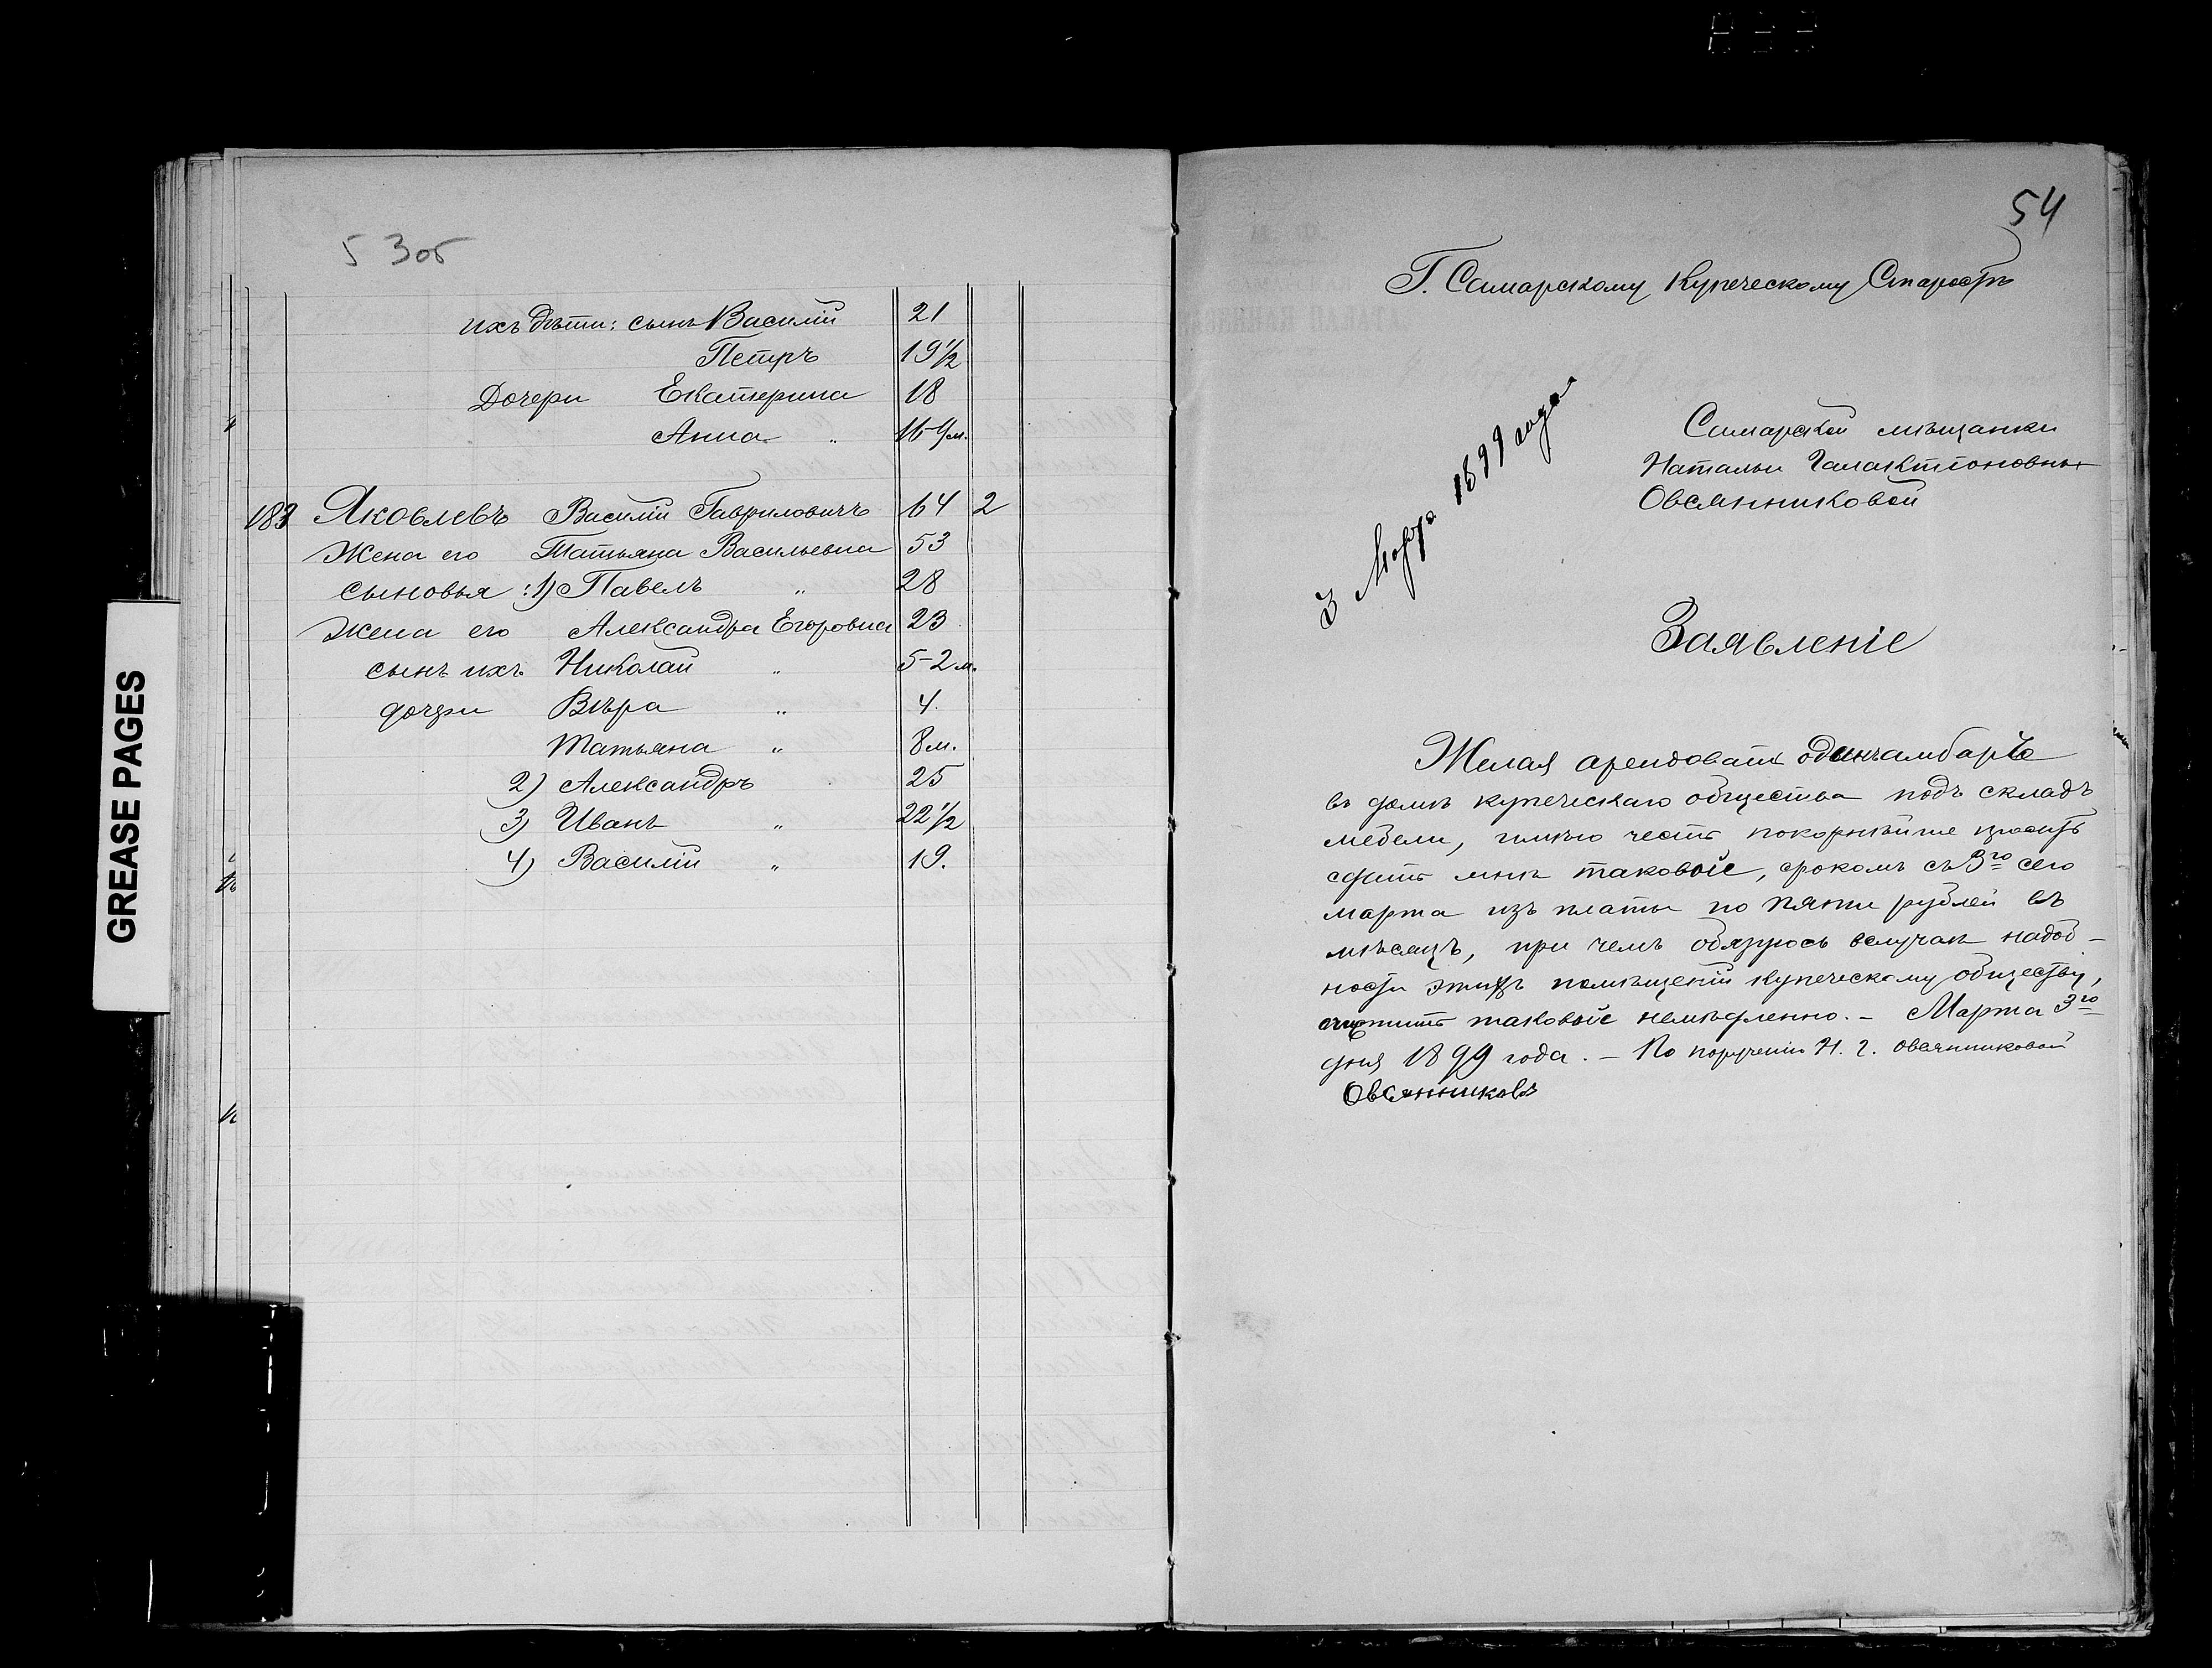 53 об
ихъ дѣти: сынъ Василій 21
Петръ 19 1/2
Дочери Екатерина 18
Анна " 16-9 м.
183 Яковлевъ Василій Гавриловичъ 64 2
Жена его Татьяна Васильевна 53
сыновья: 1) Павелъ " 28
Жена его Александра Егоровна 23
сынъ ихъ Николай " 5-2 м.
дочери Вѣра " 4.
Татьяна " 8 м.
2) Александръ 25
3) Иванъ " 22 1/2
4) Василій " 19.
GREASE PAGES
54
Г. Самарскому Купеческому Старостѣ
3 Марта 1899 года
Самарской мѣщанки
Натальи Галактіоновны
Овсянниковой
Заявленіе
Желая арендовать одинъ амбаръ
въ домѣ купеческаго общества подъ складъ
мебели, имѣю честь покорнѣйше просить
сдать мнѣ таковые, срокомъ съ 3го сего
марта изъ платы по пяти рублей въ
мѣсяцъ, при чемъ обязуюсь вслучаѣ надоб-
ности этихъ помѣщеній купеческому обществу,
очистить таковые немѣдленно. - Марта 3го
дня 1899 года. - По порученію Н. Г. Овсянниковой
Овсянниковъ